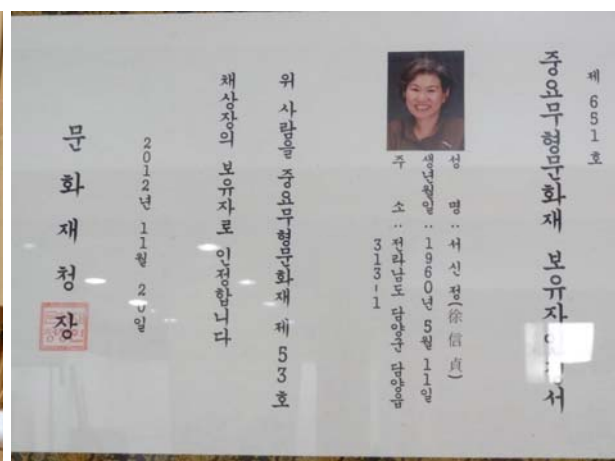 제 651 호
중요무형문화재 보유자인정서
성 명 : 서 신 정 (徐 信 貞)
생년월일 : 1960년 5월 11일
주 소 : 전라남도 담양군 담양읍
313-1
위 사람을 중요무형문화재 제 53 호
채상장의 보유자로 인정합니다
2012년 11월 20일
문 화 재 청 장